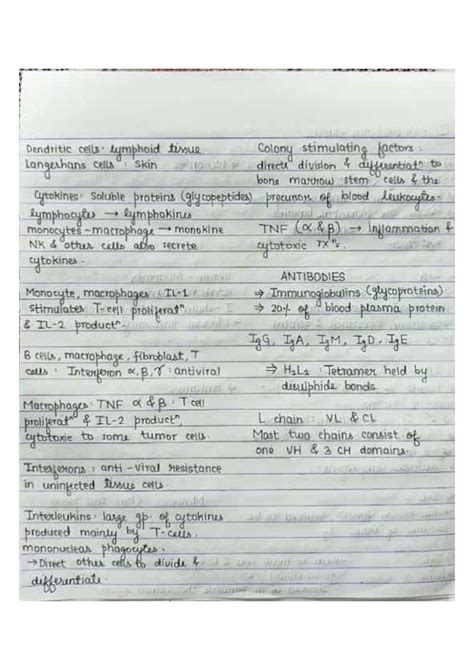 Dendritic cells: lymphoid tissue
Langerhans cells : Skin
Cytokines: Soluble proteins (glycopeptides)
lymphocytes → lymphokines
monocytes - macrophage → monokine
NK & other cells also secrete
cytokines.
Monocyte, macrophages : IL-1
stimulates T-cell proliferatⁿ
& IL-2 productⁿ.
B cells, macrophage, fibroblast, T
cells : Interferon α, β, γ : antiviral
Macrophages: TNF α & β : T cell
proliferatⁿ & IL-2 productⁿ,
cytotoxic to some tumor cells.
Interferons : anti-viral resistance
in uninfected tissue cells.
Interleukins: large gp. of cytokines
produced mainly by T-cells,
mononuclear phagocytes.
→ Direct other cells to divide &
differentiate.
Colony stimulating factors :
direct division & differentiatⁿ to
bone marrow stem cells & the
precursors of blood leukocytes-
TNF (α & β) → Inflammation &
cytotoxic rxⁿ.
ANTIBODIES
⇒ Immunoglobulins (glycoproteins)
⇒ 20% of blood plasma protein
IgG, IgA, IgM, IgD, IgE
⇒ H₂L₂ : Tetramer held by
disulphide bonds.
L chain : VL & CL
Most two chains consist of
one VH & 3 CH domains.